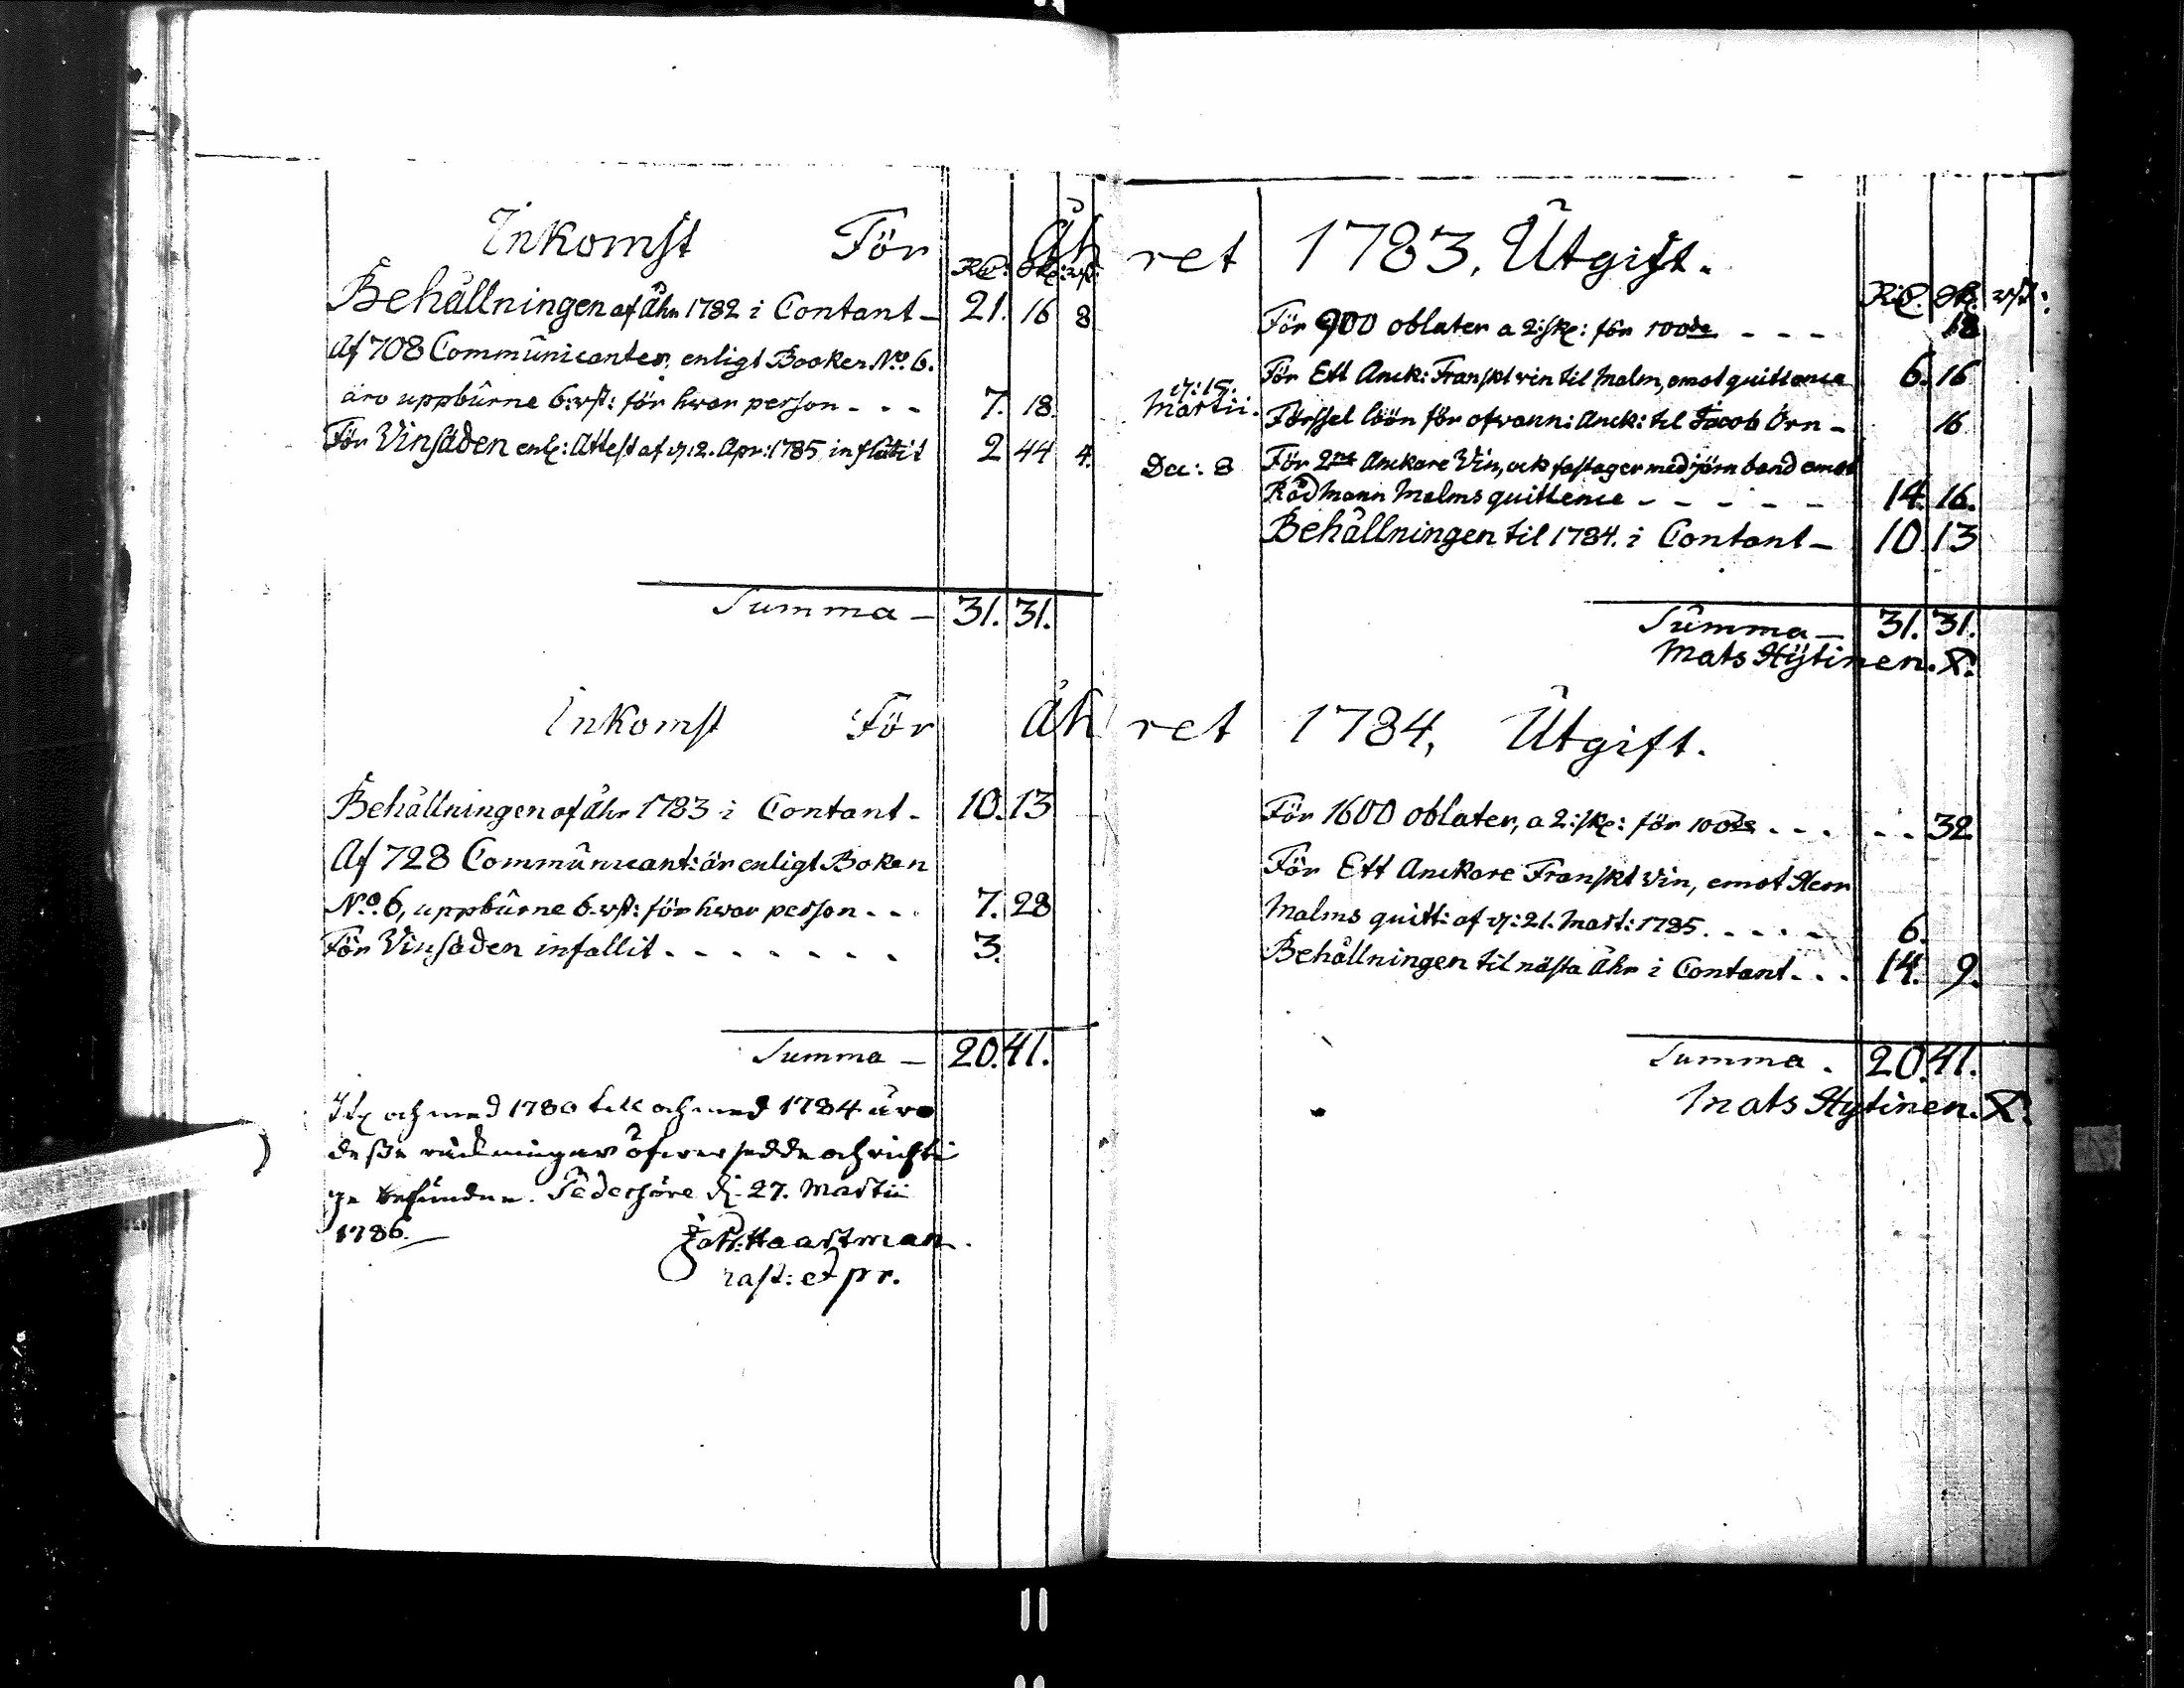 Inkomst För Åh
Rd: Sk: rst:
Behållningen af Åhr 1782 i Contant - 21. 16 8
Af 708 Communicanter, enligt Booken No. 6.
äro uppburne 6:rst: för hwar person - - - 7. 18.
För Vinsäden enl: Attest af d: 2. Apr: 1785 influtit 2 44 4.
Summa - 31. 31.
Inkomst För Åh
Behållningen af Åhr 1783 i Contant - 10. 13
Af 728 Communicant: är enligt Boken
No. 6, uppburne 6 rst: för hwar person - - - 7. 28
För Vinsäden infallit - - - - - - - 3.
Summa - 20. 41.
och med 1780 till och med 1784 äro
desse räkningar öfwersedde och richti
ge befundne. Pedersöre d. 27. Martii
1786.
Joh: Haartman
past: et pr.
ret 1783. Utgift.
Rd. Sk. rst:
För 900 oblater a 2:sk: för 100de - - - 18
För Ett Anck: Franskt vin til Malm, emot quittence 6. 16
d: 15. Martii. Förssel löön för ofvann: Anck: til Jacob Örn - 16
Dec: 8 För 2ne Anckare Vin, ock fastager med järn band emot
Rådmann Malms quittence - - - - - 14. 16.
Behållningen til 1784. i Contant - 10 13
Summa - 31. 31.
Mats Hytinen. X.
ret 1784, Utgift.
För 1600 oblater, a 2:sk: för 100de - - - - - 32
För Ett Anckare Franskt vin, emot Herr
Malms quitt: af d: 21. Mart: 1785. - - - - 6.
Behållningen til nästa Åhr i Contant - - - 14. 9.
Summa. 20. 41.
Mats Hytinen. X.